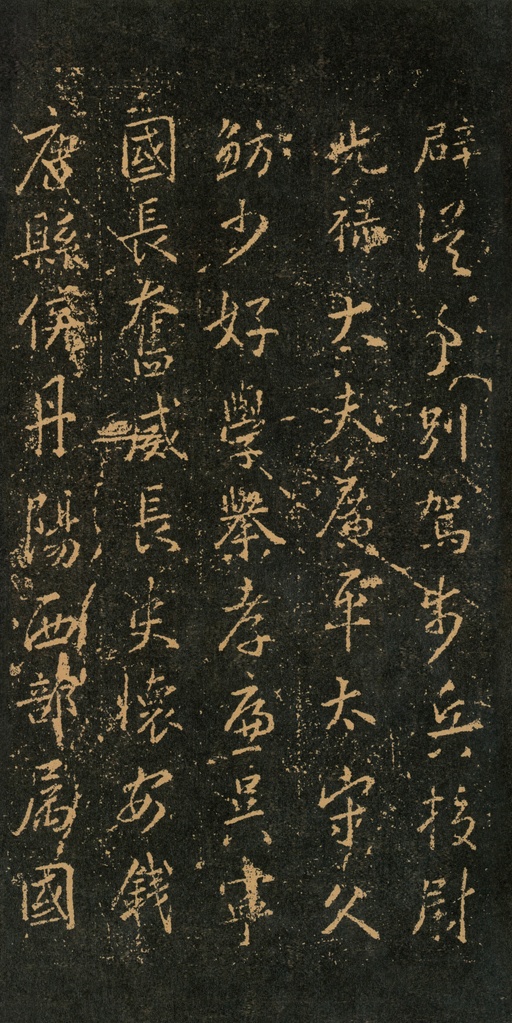 辟從事別駕步兵校尉
光祿大夫廣平太守父
鲂少好學舉孝廉吳寧
國長奮威長史懷安錢
唐縣侯丹陽西部属國